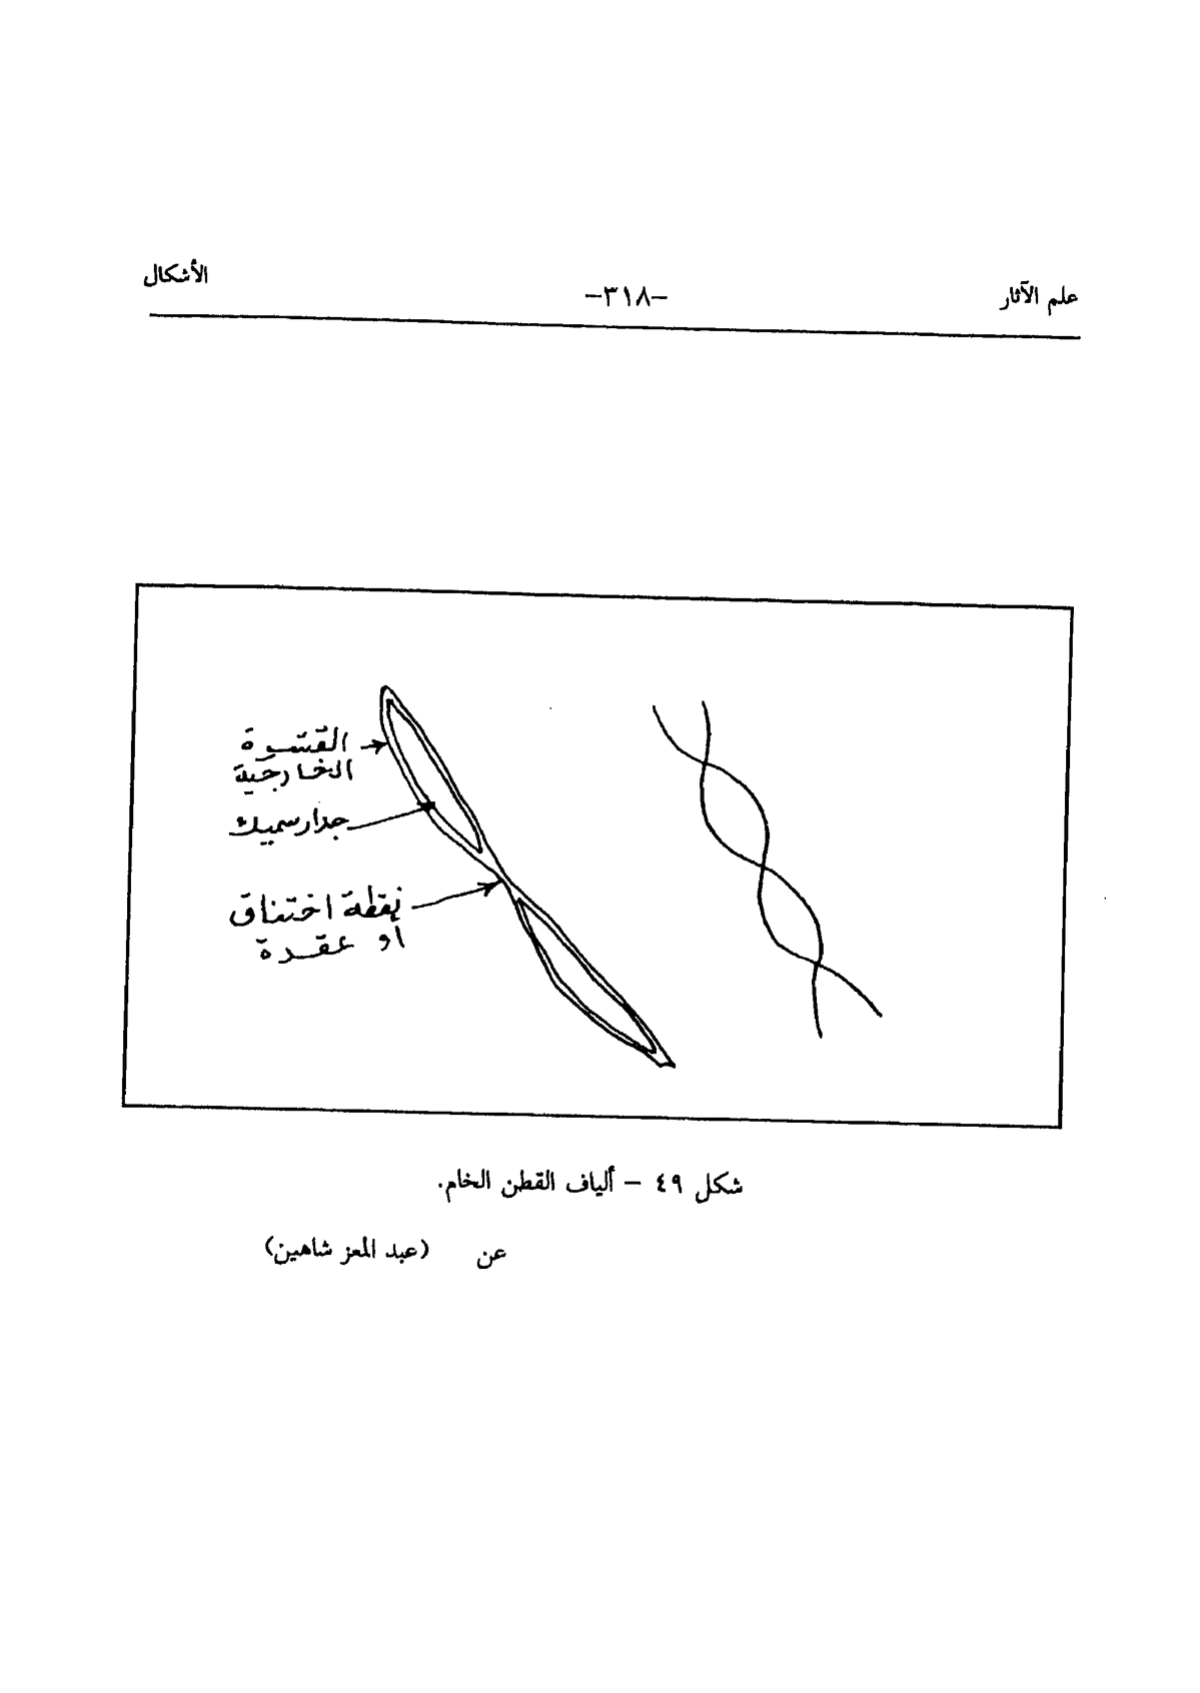 علم الآثار
-٣١٨-
الأشكال
القشرة
الخارجية
جدار سميك
نقطة اختناق
أو عقدة
شكل ٤٩ - ألياف القطن الخام.
عن (عبد المعز شاهين)